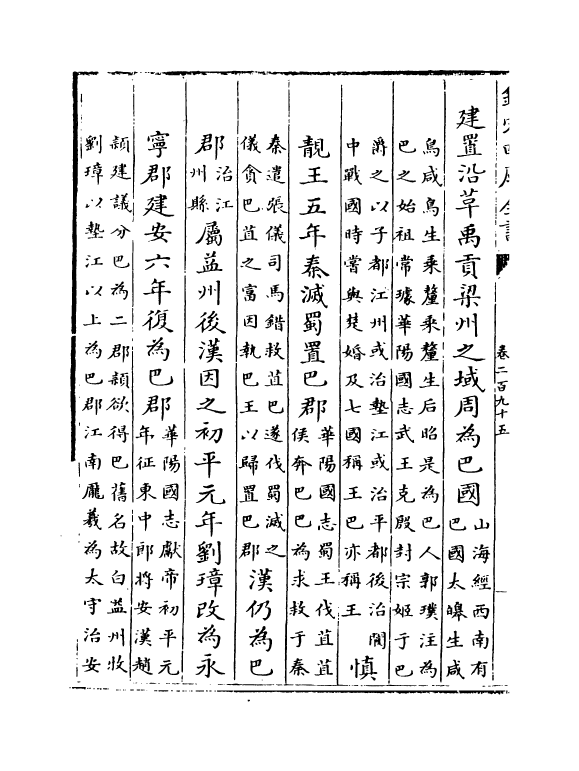 欽定四庫全書
卷二百九十五
建置沿革禹貢梁州之域周為巴國山海經西南有
巴國太皞生咸
鳥咸鳥生乘釐乘釐生后昭是為巴人郭璞注為
巴之始祖常璩華陽國志武王克殷封宗姬于巴
爵之以子都江州或治墊江或治平都後治閬
中戰國時嘗與楚婚及七國稱王巴亦稱王慎
靚王五年秦滅蜀置巴郡華陽國志蜀王伐苴苴
侯奔巴巴為求救于秦
秦遣張儀司馬錯救苴巴遂伐蜀滅之
儀貪巴苴之富因執巴王以歸置巴郡漢仍為巴
郡治江
州縣屬益州後漢因之初平元年劉璋改為永
寧郡建安六年復為巴郡華陽國志獻帝初平元
年征東中郎將安漢趙
頴建議分巴為二郡頴欲得巴舊名故白益州牧
劉璋以墊江以上為巴郡江南龐羲為太守治安